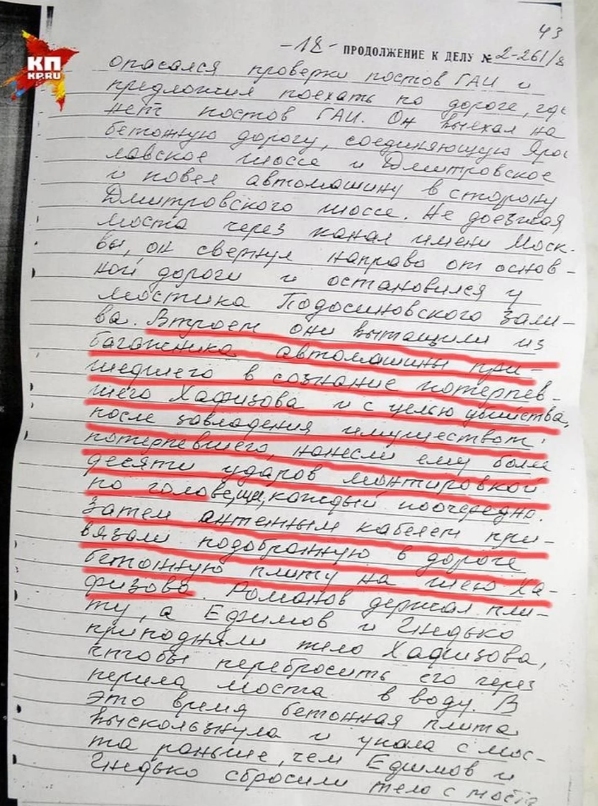 43
КП
KP.RU
-18- ПРОДОЛЖЕНИЕ К ДЕЛУ № 2-261/8
опасался проверки постов ГАИ и
предложил поехать по дороге, где
нет постов ГАИ. Он выехал на
бетонную дорогу, соединяющую Яро-
лавское шоссе и Дмитровское
и повел автомашину в сторону
Дмитровского шоссе. Не доезжая
моста через канал имени Моск-
вы, он свернул направо от основ-
ной дороги и остановился у
мостика Подосиновского зали-
ва. Втроем они вытащили из
багажника автомашины при-
шедшего в сознание потерпев-
шего Хафизова и с целью убийства,
после завладения имуществом
потерпевшего, нанесли ему более
десяти ударов монтировкой
по голове, каждый поочередно.
Затем антенным кабелем при-
вязали подобранную в дороге
бетонную плиту на шею Ха-
физова. Романов держал пли-
ту, а Ефимов и Гнедько
приподняли тело Хафизова,
чтобы перебросить его через
перила моста в воду. В
это время бетонная плита
выскользнула и упала с мос-
та раньше, чем Ефимов и
Гнедько сбросили тело с моста